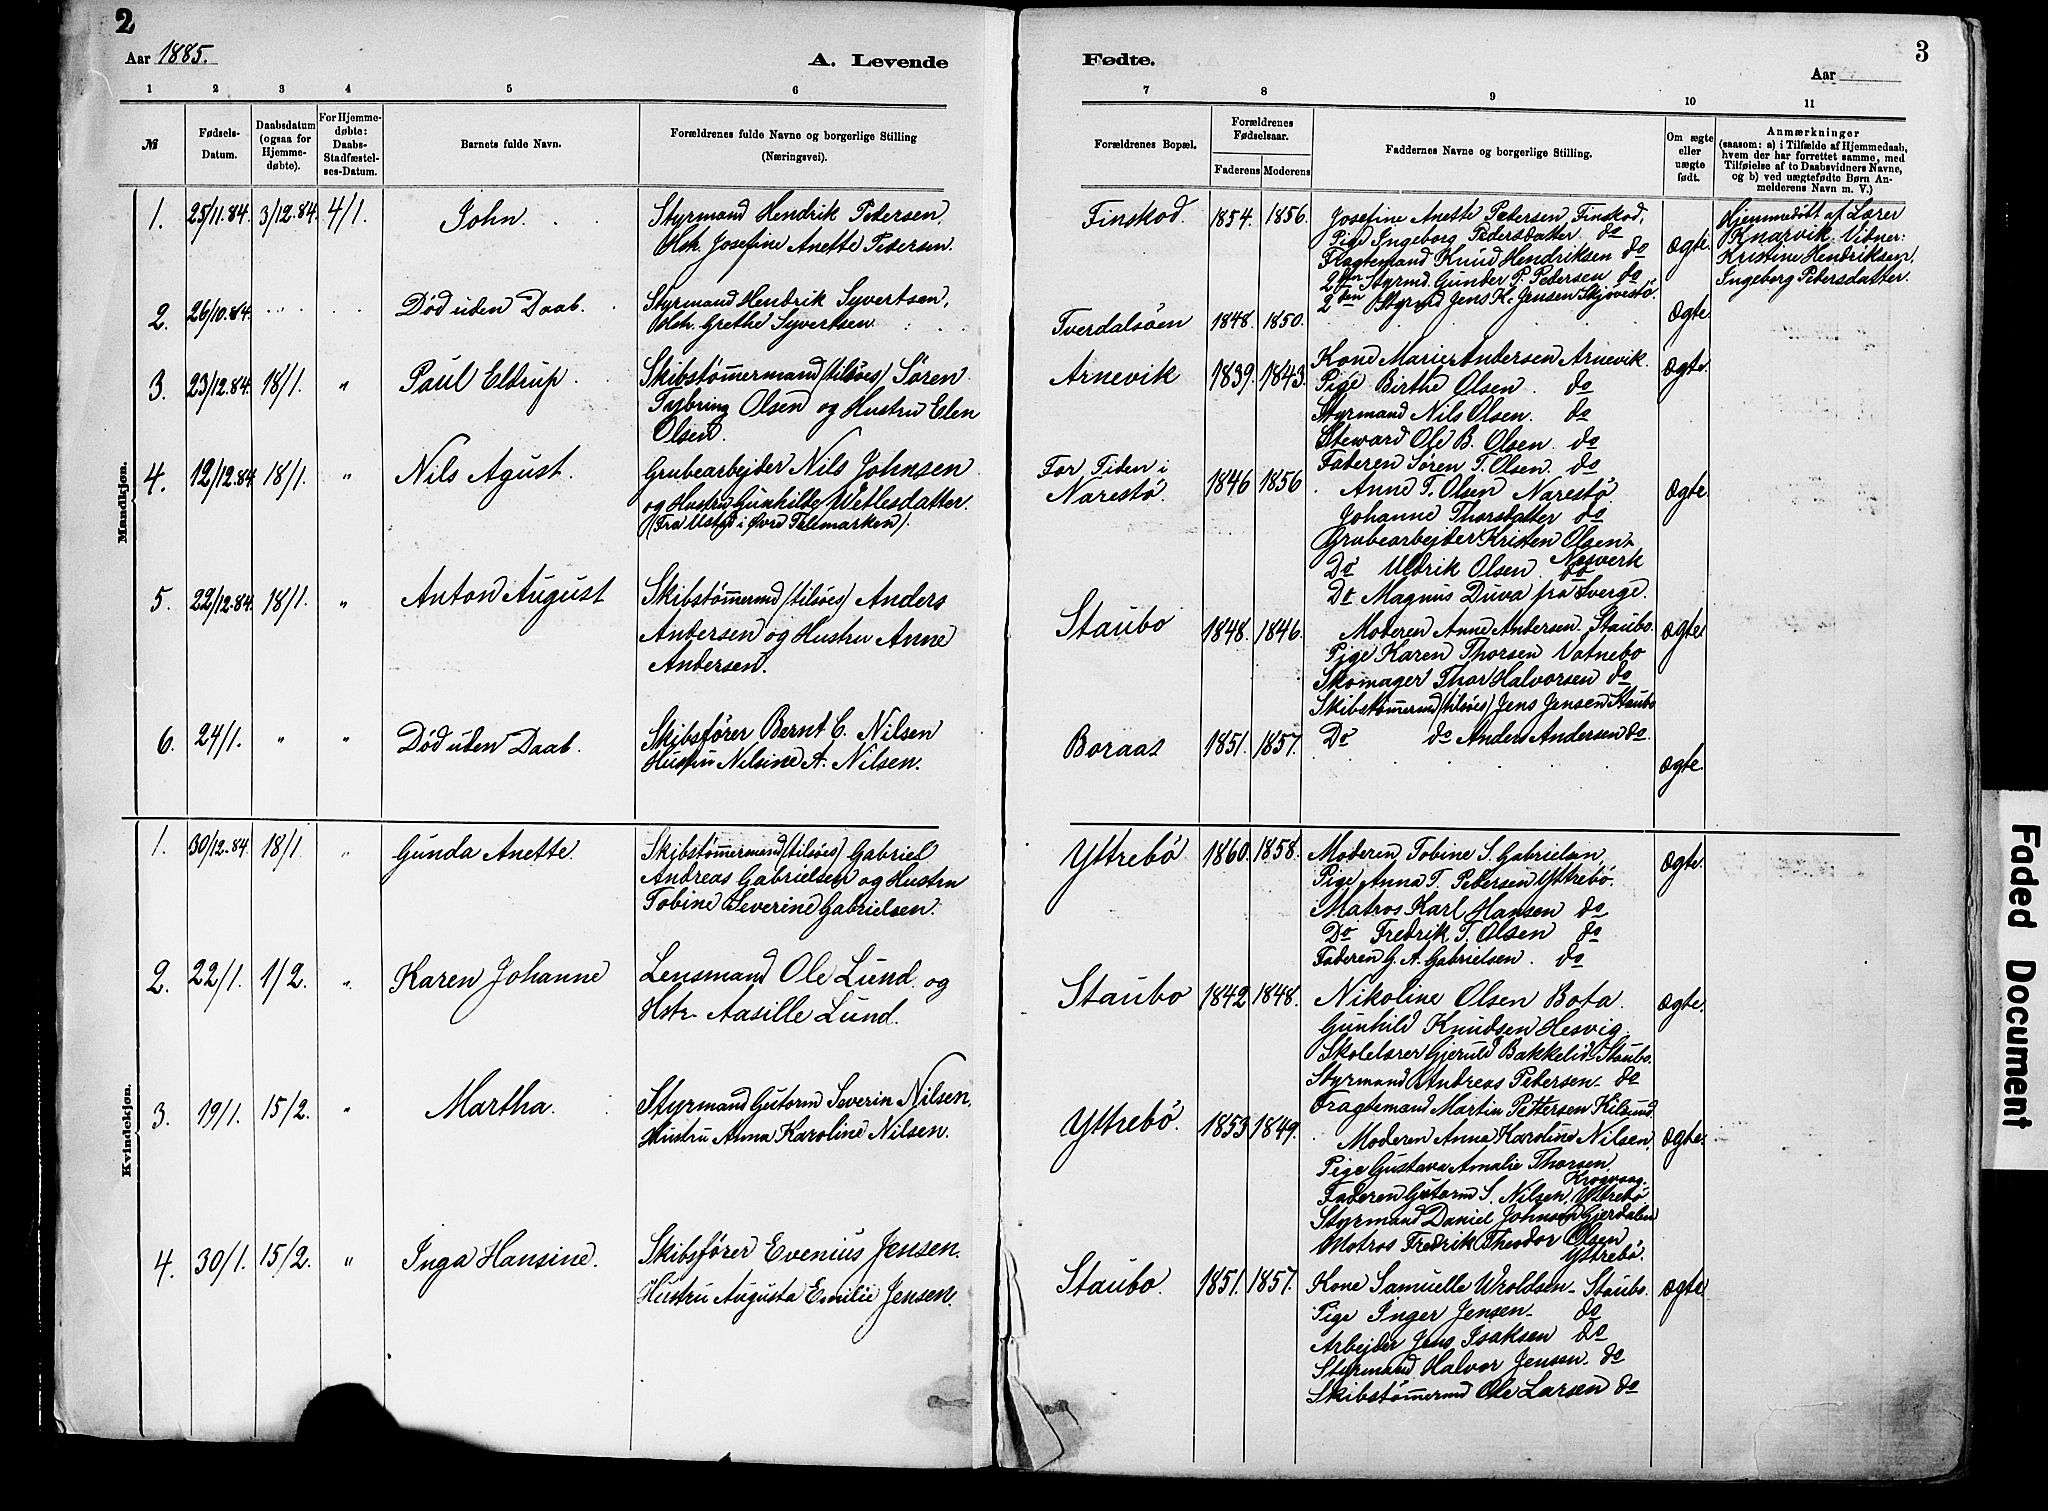 2
Aar 1885.
A. Levende
1 2 3 4 5 6
№
Fødsels-
Datum.
Daabsdatum
(ogsaa for
Hjemme-
døbte).
For Hjemme-
døbte:
Daabs-
Stadfæstel-
ses-Datum.
Barnets fulde Navn.
Forældrenes fulde Navne og borgerlige Stilling
(Næringsvei).
Mandkjøn.
1. 25/11.84. 3/12.84. 4/1. John.
Styrmand Hendrik Pedersen,
Hstr. Josefine Anette Pedersen.
2. 26/10.84. Død uden Daab.
Styrmand Hendrik Syvertsen,
Hstr. Grethe Syvertsen
3. 23/12.84. 18/1. " Paul Eltrup.
Skibstømmermand (tilsøes) Sören
Tybring Olsen og Hustru Elen
Olsen.
4. 12/12.84 18/1. " Nils Agust.
Grubearbejder Nils Johnsen
og Hustru Gunhilde Wetlesdatter.
(Fra i Øvre Tellmarken).
5. 22/12.84. 18/1. " Anton August
Skibstømermd (tilsöes) Anders
Andersen og Hustru Anne
Andersen.
6. 24/1. " " Død uden Daab.
Skibsfører Bernt C. Nilsen
Hustru Nilsine A. Nilsen.
Kvindekjøn.
1. 30/12.84. 18/1 " Gunda Anette.
Skibstømmermand (tilsöes) Gabriel
Andreas Gabrielsen og Hustru
Tobine Severine Gabrielsen.
2. 22/1. 1/2. " Karen Johanne
Lensmand Ole Lund og
Hstr. Aasille Lund.
3. 19/1. 15/2. " Martha.
Styrmand Gutorm Severin Nilsen,
Hustru Anna Karoline Nilsen.
4. 30/1. 15/2. " Inga Hansine.
Skibsfører Evenius Jensen.
Hustru Augusta Emilie Jensen.
3
Fødte.
Aar
7 8 9 10 11
Forældrenes Bopæl.
Forældrenes
Fødselsaar.
Faderens Moderens
Faddernes Navne og borgerlige Stilling.
Om ægte
eller
uægte
født.
Anmærkninger
(saasom: a) i Tilfælde af Hjemmedaab,
hvem der har forrettet samme, med
Tilføielse af to Daabsvidners Navne,
og b) ved uægtefødte Børn An-
melderens Navn m. V.)
Finskod. 1854. 1856.
Josefine Anette Pedersen, Finskod,
Pige Ingeborg Pedersdatter. do
Fragtemand Knud Hendriksen do
2den Styrmd. Gunder P. Pedersen do
2den Styrmd Jens K. Jensen Skjivestö.
Ægte.
Hjemmedöbt af Lærer
Knarvik. Vidner:
Kristine Hendriksen,
Ingeborg Pedersdatter.
Tverdalsöen 1848. 1850. Ægte.
Arnevik 1839. 1843.
Kone Marie Andersen Arnevik
Pige Birthe Olsen. do
Styrmand Nils Olsen. do
Steward Ole B. Olsen. do
Faderen Søren T. Olsen. do
Ægte.
For Tiden i
Narestö. 1846 1856
Anne T. Olsen Narestö.
Johanne Thorsdatter do
Grubearbejder Kristen Olsen
Næsverk
Do Uldrik Olsen do
Do Magnus Duva fra Sverge.
Ægte.
Staubo 1848. 1846.
Moderen Anne Andersen. Staubo.
Pige Karen Thorsen Vatnebo
Skomager Thor Halvorsen do
Skibstømermd (tilsöes) Jens Jensen Staubo
Do do Anders Andersen do.
Ægte
Boraas 1851. 1857. Ægte.
Yttrebö 1860. 1858.
Moderen Tobine S. Gabrielsen,
Pige Anna T. Pedersen Yttrebö.
Matros Karl Hansen do
Do Fredrik T. Olsen do
Faderen G. A. Gabrielsen. do
Ægte.
Staubo 1842 1848.
Nikoline Olsen Bota.
Gunhild Knudsen Hesvig.
Skolelærer Gjeruld Bakkelid. Staubo.
Styrmand Andreas Petersen do
Fragtemand Martin Pettersen Kilsund.
Ægte.
Yttrebö. 1853 1849.
Moderen Anna Karoline Nilsen,
Pige Gustava Amalie Thorsen,
Krogvaag.
Faderen Gutorm S. Nilsen, Yttrebö
Styrmand Daniel Johnsen Gjerdalen
Matros Fredrik Theodor Olsen
Yttrebö.
Ægte.
Staubo. 1851. 1857.
Kone Samuelle Wroldsen Staubo.
Pige Inger Jensen do
Arbejder Jens Isaksen do
Styrmand Halvor Jensen. do
Skibstømermd Ole Larsen do
Ægte
Faded Document